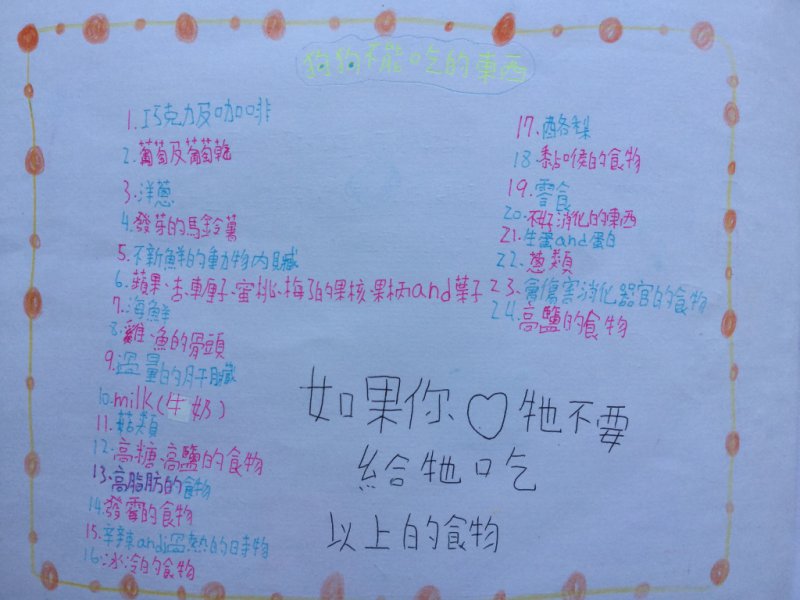 狗狗不能吃的東西
1.巧克力及咖啡
2.葡萄及葡萄乾
3.洋蔥
4.發芽的馬鈴薯
5.不新鮮的動物內臟
6.蘋果、杏、車厘子、蜜桃、梅子的果核、果柄and葉子
7.海鮮
8.雞、漁的骨頭
9.過量的肝臟
10.milk(牛奶)
11.菇類
12.高糖、高鹽的食物
13.高脂肪的食物
14.發霉的食物
15.辛辣and過熱的食物
16.冰冷的食物
17.酪梨
18.黏喉的食物
19.零食
20.不好消化的東西
21.生蛋and蛋白
22.蔥類
23.會傷害消化器官的食物
24.高鹽的食物
如果你♡牠不要
給牠吃
以上的食物